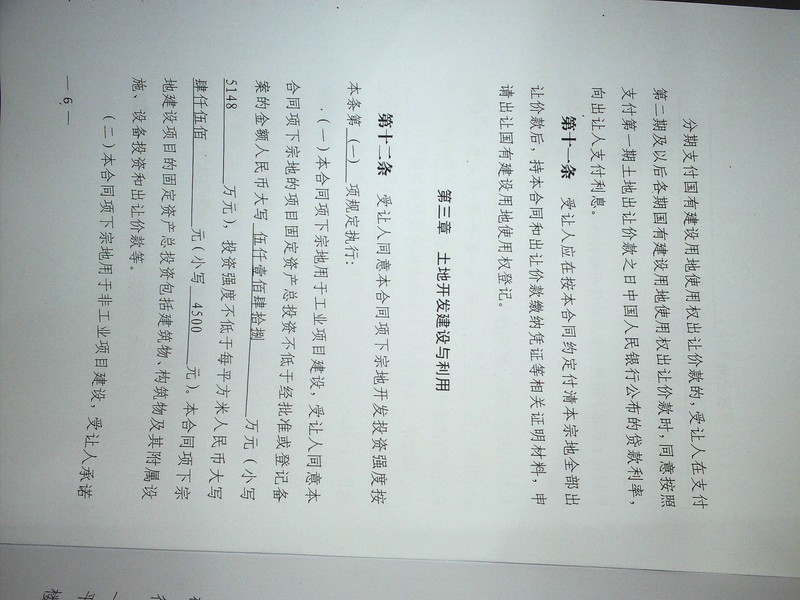 分期支付国有建设用地使用权出让价款的，受让人在支付
第二期及以后各期国有建设用地使用权出让价款时，同意按照
支付第一期土地出让价款之日中国人民银行公布的贷款利率，
向出让人支付利息。
第十一条 受让人应在按本合同约定付清本宗地全部出
让价款后，持本合同和出让价款缴纳凭证等相关证明材料，申
请出让国有建设用地使用权登记。
第三章 土地开发建设与利用
第十二条 受让人同意本合同项下宗地开发投资强度按
本条第 (一) 项规定执行：
（一）本合同项下宗地用于工业项目建设，受让人同意本
合同项下宗地的项目固定资产总投资不低于经批准或登记备
案的金额人民币大写 伍仟壹佰肆拾捌 万元（小写
5148 万元），投资强度不低于每平方米人民币大写
肆仟伍佰 元（小写 4500 元）。本合同项下宗
地建设项目的固定资产总投资包括建筑物、构筑物及其附属设
施、设备投资和出让价款等。
（二）本合同项下宗地用于非工业项目建设，受让人承诺
— 6 —